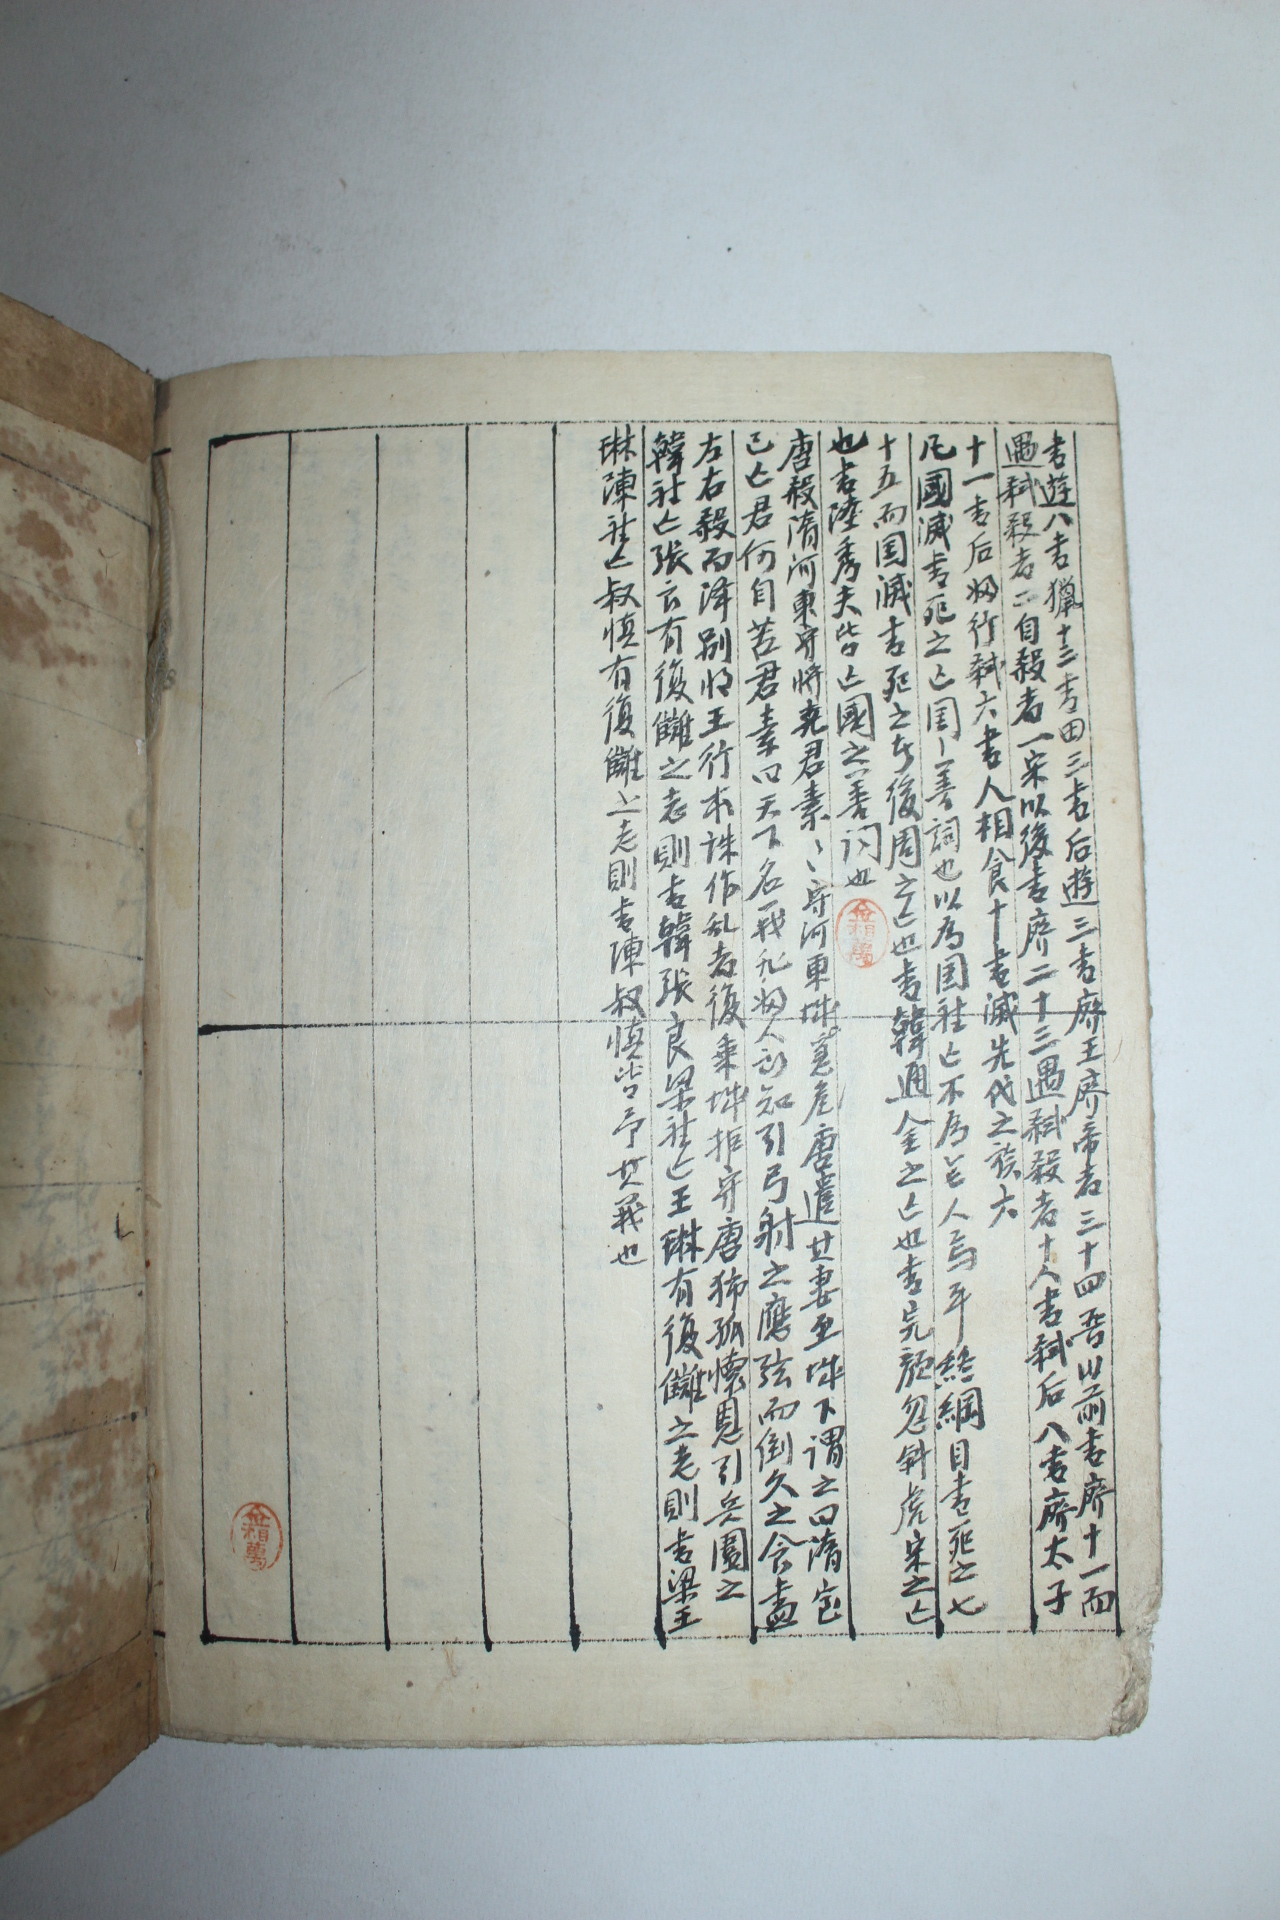 書遊八書獵十三書田三書后遊三書廢王廢帝者三十四晋以前書廢十一而
遇弑殺者二自殺者一宋以後書廢二十三遇弑殺者十人書弑后八書廢太子
十一書后妃行弑六書人相食十書滅先代之族六
凡國滅書死之亡国〻善詞也以為国社亡不為亡人焉耳終綱目書死之七
十五而国滅書死之於後周之亡也書韓通金之亡也書完顔忽斜虎宋之亡
也書陸秀夫皆亡國之善詞也
唐殺隋河東守將尭君素〻守河東城危唐遣其妻至城下謂之曰隋室
已亡君何自苦君素曰天下名義非婦人所知引弓射之應弦而倒久之食盡
左右殺而降別將王行本誅作乱者復乗城拒守唐獨孤懷恩引兵圍之
韓社亡張良有復讎之志則書韓張良梁社亡王琳有復讎之志則書梁王
琳陳社亡叔慎有復讎之志則書陳叔慎皆予其義也